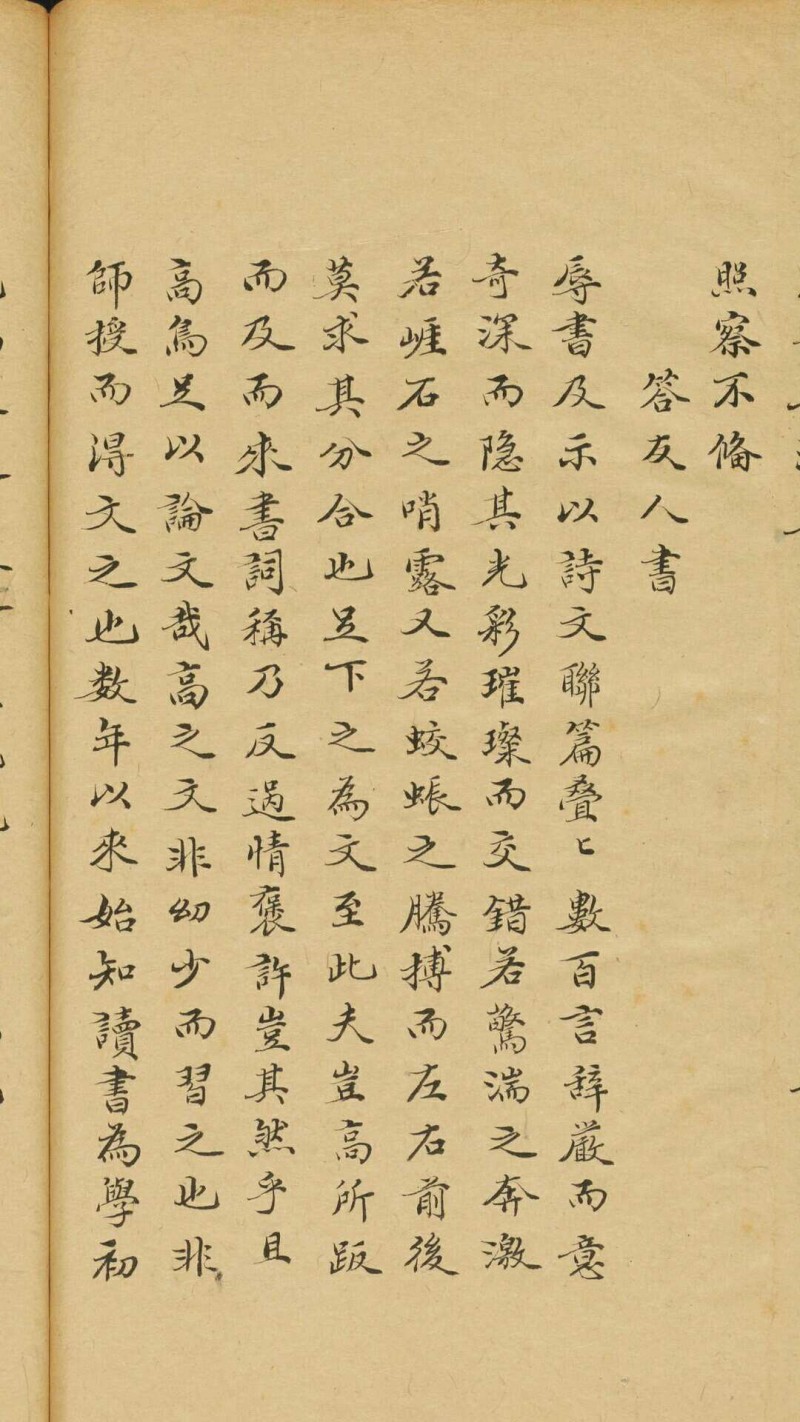 照察不俻
答友人書
辱書及示以詩文聯篇疊〻數百言辭嚴而意
奇深而隐其光彩璀璨而交錯若驚湍之奔激
若崕石之哨露又若蛟蜧之騰搏而左右前後
莫求其分合也足下之為文至此夫豈高所
而及而來書詞稱乃反過情褒許豈其然乎且
高焉足以論文哉高之文非幼少而習之也非
師授而得文之也数年以來始知讀書為學初